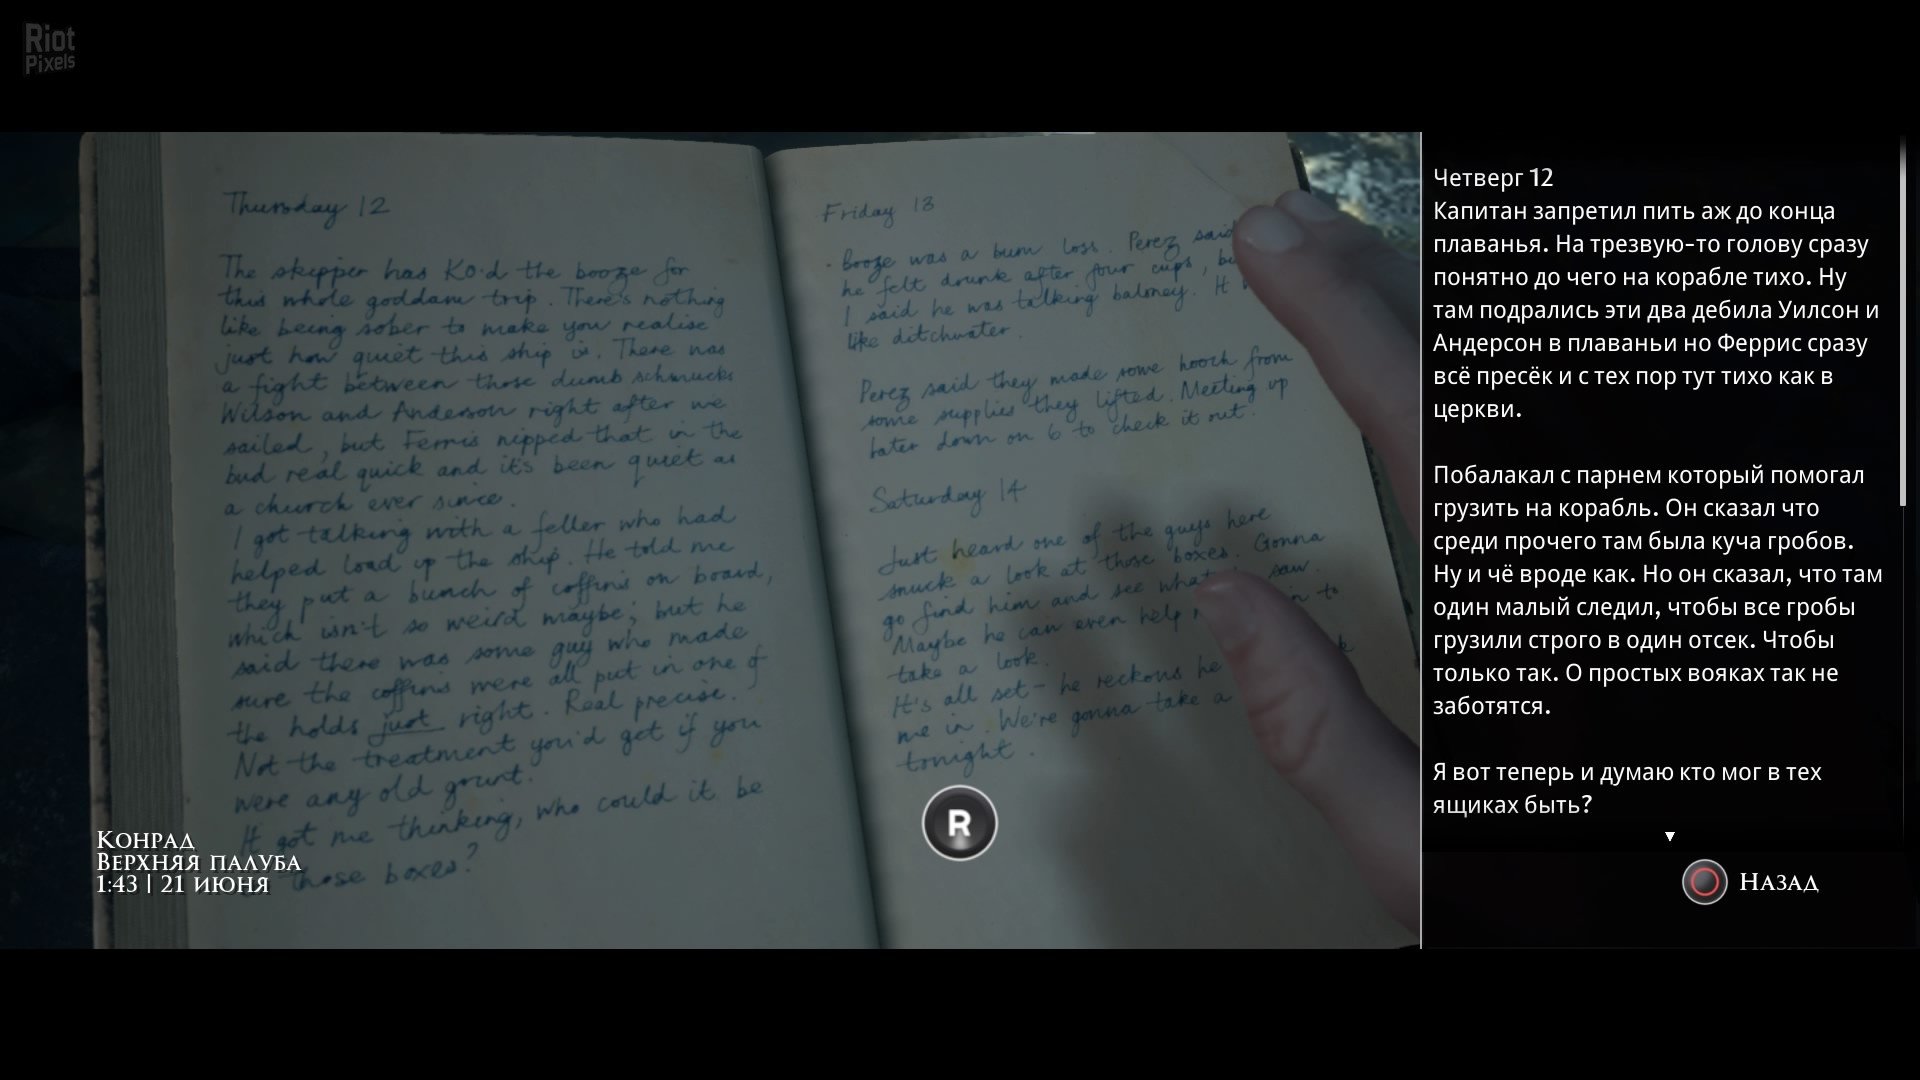 Riot
Pixels
Thursday 12
The skipper has KO'd the booze for
this whole goddam trip. There's nothing
like being sober to make you realise
just how quiet this ship is. There was
a fight between those dumb schmucks
Wilson and Anderson right after we
sailed, but Ferris nipped that in the
bud real quick and it's been quiet as
a church ever since.
I got talking with a feller who had
helped load up the ship. He told me
they put a bunch of coffins on board,
which isn't so weird maybe; but he
said there was some guy who made
sure the coffins were all put in one of
the holds just right. Real precise.
Not the treatment you'd get if you
were any old grunt.
It got me thinking, who could it be
those boxes?
Friday 13
Booze was a bum loss. Perez said
he felt drunk after four cups, bu
I said he was talking baloney. It
like ditchwater.
Perez said they made some hooch from
some supplies they lifted. Meeting up
later down on 6 to check it out.
Saturday 14
Just heard one of the guys here
snuck a look at those boxes. Gonna
go find him and see what saw.
Maybe he can even help in to
take a look.
It's all set - he reckons he
me in. We're gonna take a
tonight.
R
Конрад
Верхняя палуба
1:43 | 21 июня
Четверг 12
Капитан запретил пить аж до конца
плаванья. На трезвую-то голову сразу
понятно до чего на корабле тихо. Ну
там подрались эти два дебила Уилсон и
Андерсон в плаваньи но Феррис сразу
всё пресёк и с тех пор тут тихо как в
церкви.
Побалакал с парнем который помогал
грузить на корабль. Он сказал что
среди прочего там была куча гробов.
Ну и чё вроде как. Но он сказал, что там
один малый следил, чтобы все гробы
грузили строго в один отсек. Чтобы
только так. О простых вояках так не
заботятся.
Я вот теперь и думаю кто мог в тех
ящиках быть?
Назад